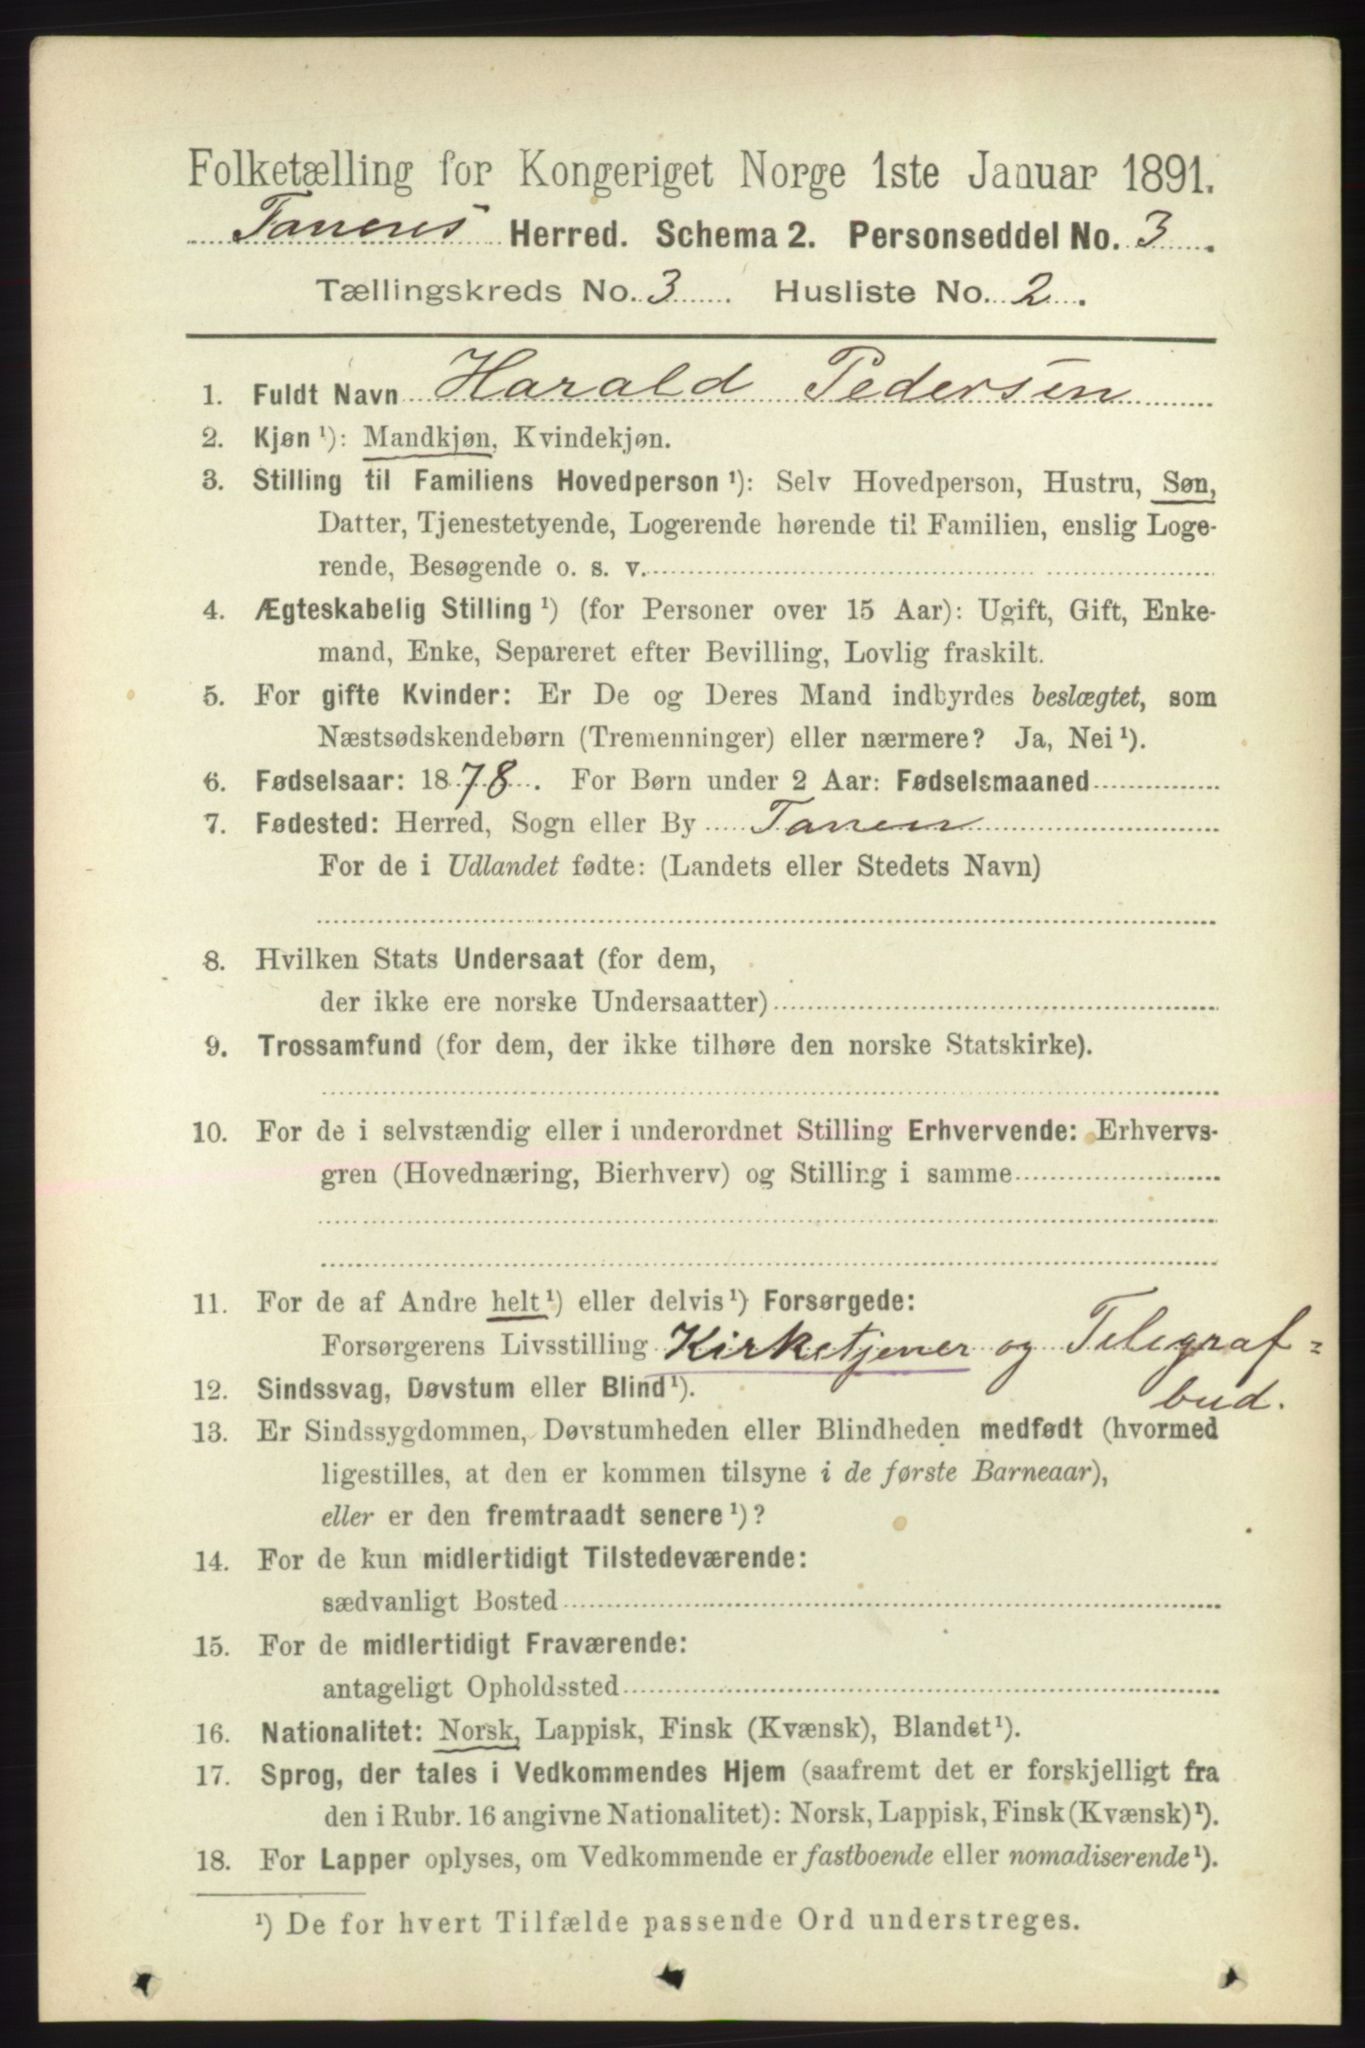 Folketælling for Kongeriget Norge 1ste Januar 1891.
Tanens Herred. Schema 2. Personseddel No. 3.
Tællingskreds No. 3 Husliste No. 2.
1. Fuldt Navn Harald Pedersen
2. Kjøn ¹): Mandkjøn, Kvindekjøn.
3. Stilling til Familiens Hovedperson ¹): Selv Hovedperson, Hustru, Søn,
Datter, Tjenestetyende, Logerende hørende til Familien, enslig Loge-
rende, Besøgende o. s. v.
4. Ægteskabelig Stilling ¹) (for Personer over 15 Aar): Ugift, Gift, Enke-
mand, Enke, Separeret efter Bevilling, Lovlig fraskilt.
5. For gifte Kvinder: Er De og Deres Mand indbyrdes beslægtet, som
Næstsødskendebørn (Tremenninger) eller nærmere? Ja, Nei ¹).
6. Fødselsaar: 1878. For Børn under 2 Aar: Fødselsmaaned
7. Fødested: Herred, Sogn eller By Tanen
For de i Udlandet fødte: (Landets eller Stedets Navn)
8. Hvilken Stats Undersaat (for dem,
der ikke ere norske Undersaatter)
9. Trossamfund (for dem, der ikke tilhøre den norske Statskirke).
10. For de i selvstændig eller i underordnet Stilling Erhvervende: Erhvervs-
gren (Hovednæring, Bierhverv) og Stilling i samme
11. For de af Andre helt ¹) eller delvis ¹) Forsørgede:
Forsørgerens Livsstilling Kirketjener og Telegraf=
bud.
12. Sindssvag, Døvstum eller Blind ¹).
13. Er Sindssygdommen, Døvstumheden eller Blindheden medfødt (hvormed
ligestilles, at den er kommen tilsyne i de første Barneaar),
eller er den fremtraadt senere ¹)?
14. For de kun midlertidigt Tilstedeværende:
sædvanligt Bosted
15. For de midlertidigt Fraværende:
antageligt Opholdssted
16. Nationalitet: Norsk, Lappisk, Finsk (Kvænsk), Blandet ¹).
17. Sprog, der tales i Vedkommendes Hjem (saafremt det er forskjelligt fra
den i Rubr. 16 angivne Nationalitet): Norsk, Lappisk, Finsk (Kvænsk) ¹).
18. For Lapper oplyses, om Vedkommende er fastboende eller nomadiserende ¹).
¹) De for hvert Tilfælde passende Ord understreges.